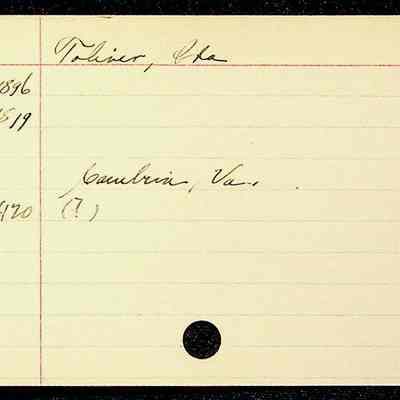 Toliver, Ida
1896
1519
Cambria, Va.
420 (?)